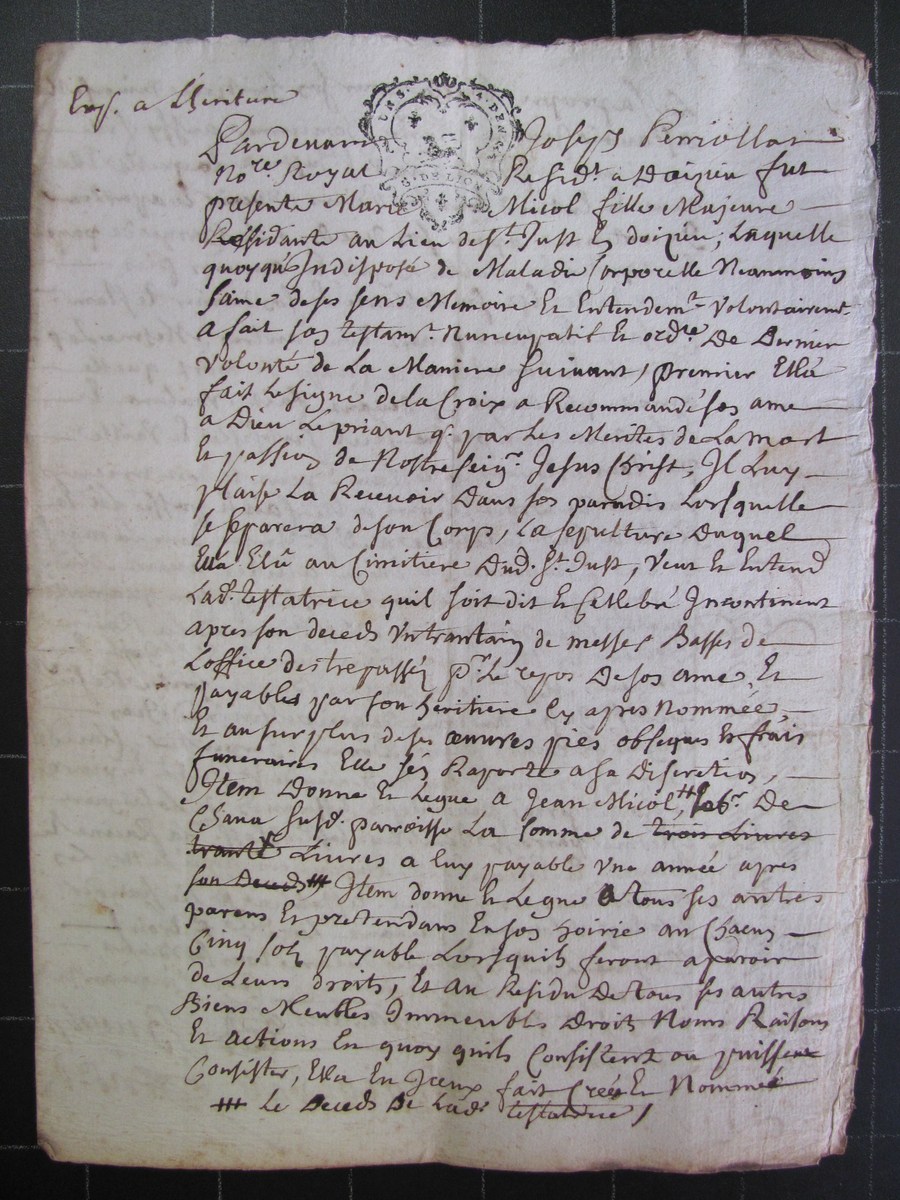 Exp. a L'heritiere
LAS. 4. DEN.
G. DE LION
Pardevant Joseph Perriollat
No.re Royal Resid.t a Doizieu fut
presente Marie Micol fille Majeure
Residante au Lieu de S.t Just En doizieu, Laquelle
quoyque Indisposé de Maladie Corporelle Neanmoins
saine de ses sens Memoire Et Entendem.t Volontairem.t
a fait son testam.t Nuncupatif Et ord.re De Dernier
Volonté de La Maniere suivant, premier Elle a
fait Le signe de la Croix a Recommandé son ame
a Dieu Le priant q.e par Les Merites de La mort
Et passion de Nostre seig.r Jesus Christ, Il Luy
plaise La Recevoir Dans son paradis Lorsquelle
se separera de son Corps, La sepulture Duquel
Ella Elû au Cimitiere Dud. S.t Just, Veut Et Entend
Lad. testatrice quil soit dit Et Cellebré Incontinent
apres son deceds Un trantain de messes Basses de
L'office des trepassés p.r Le repos De son ame, Et
payables par son heritiere Cy apres Nommée,
Et au surplus de ses œuvres pies obseques Et frais
funeraires Elle s'en Raporte a sa Discretion,
Item Donne Et Legue a Jean Micol, # De
Chana susd. parroisse La somme de trois Livres
trante Livres a Luy payable Une année apres
son Deceds # Item donne Et Legue a tous ses autres
parens Et pretendans En son hoirie au Chacun
Cinq sols payable Lorsquils feront aparoir
de Leurs droits, Et au Residu De tous ses autres
Biens Meubles Immeubles Droits Noms Raisons
Et actions En quoy quils Consistent ou puissent
Consister, Ella En Iceux fait Creé Et Nommée
# Le Deceds De Lad. testatrice /